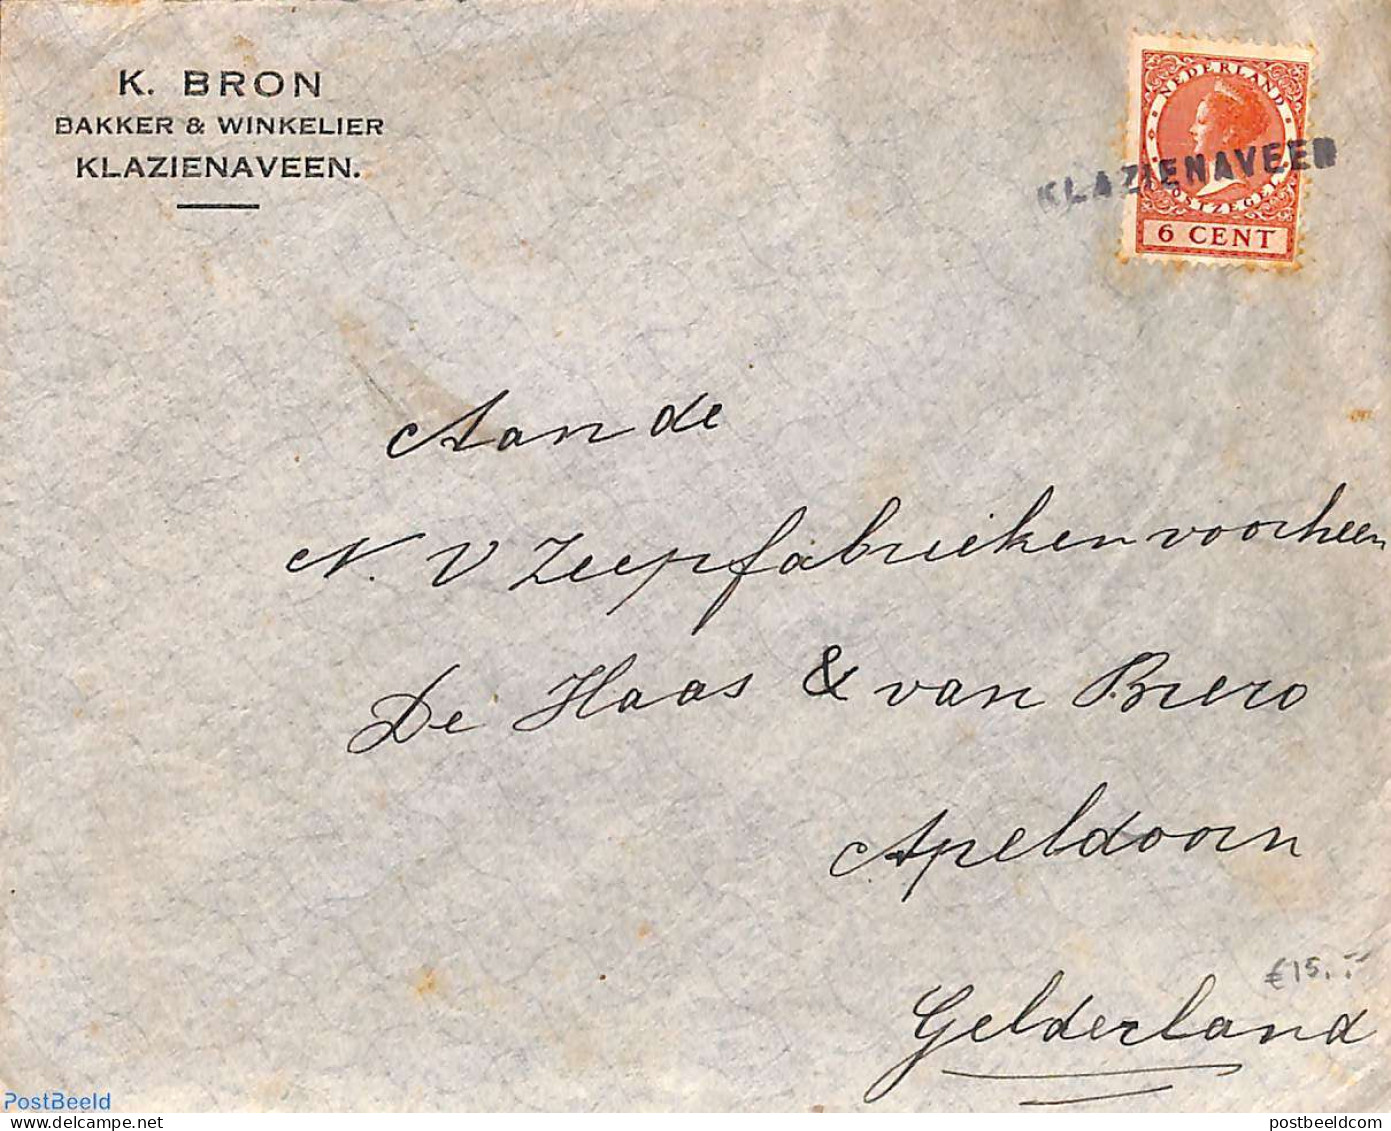 K. BRON
BAKKER & WINKELIER
KLAZIENAVEEN.
NEDERLAND
POSTZEGEL
6 CENT
KLAZIENAVEEN
Aan de
N.V Zeepfabrieken voorheen
De Haas & van Brero
Apeldoorn
€15.-
Gelderland
PostBeeld
delcampe.net
postbeeldcom